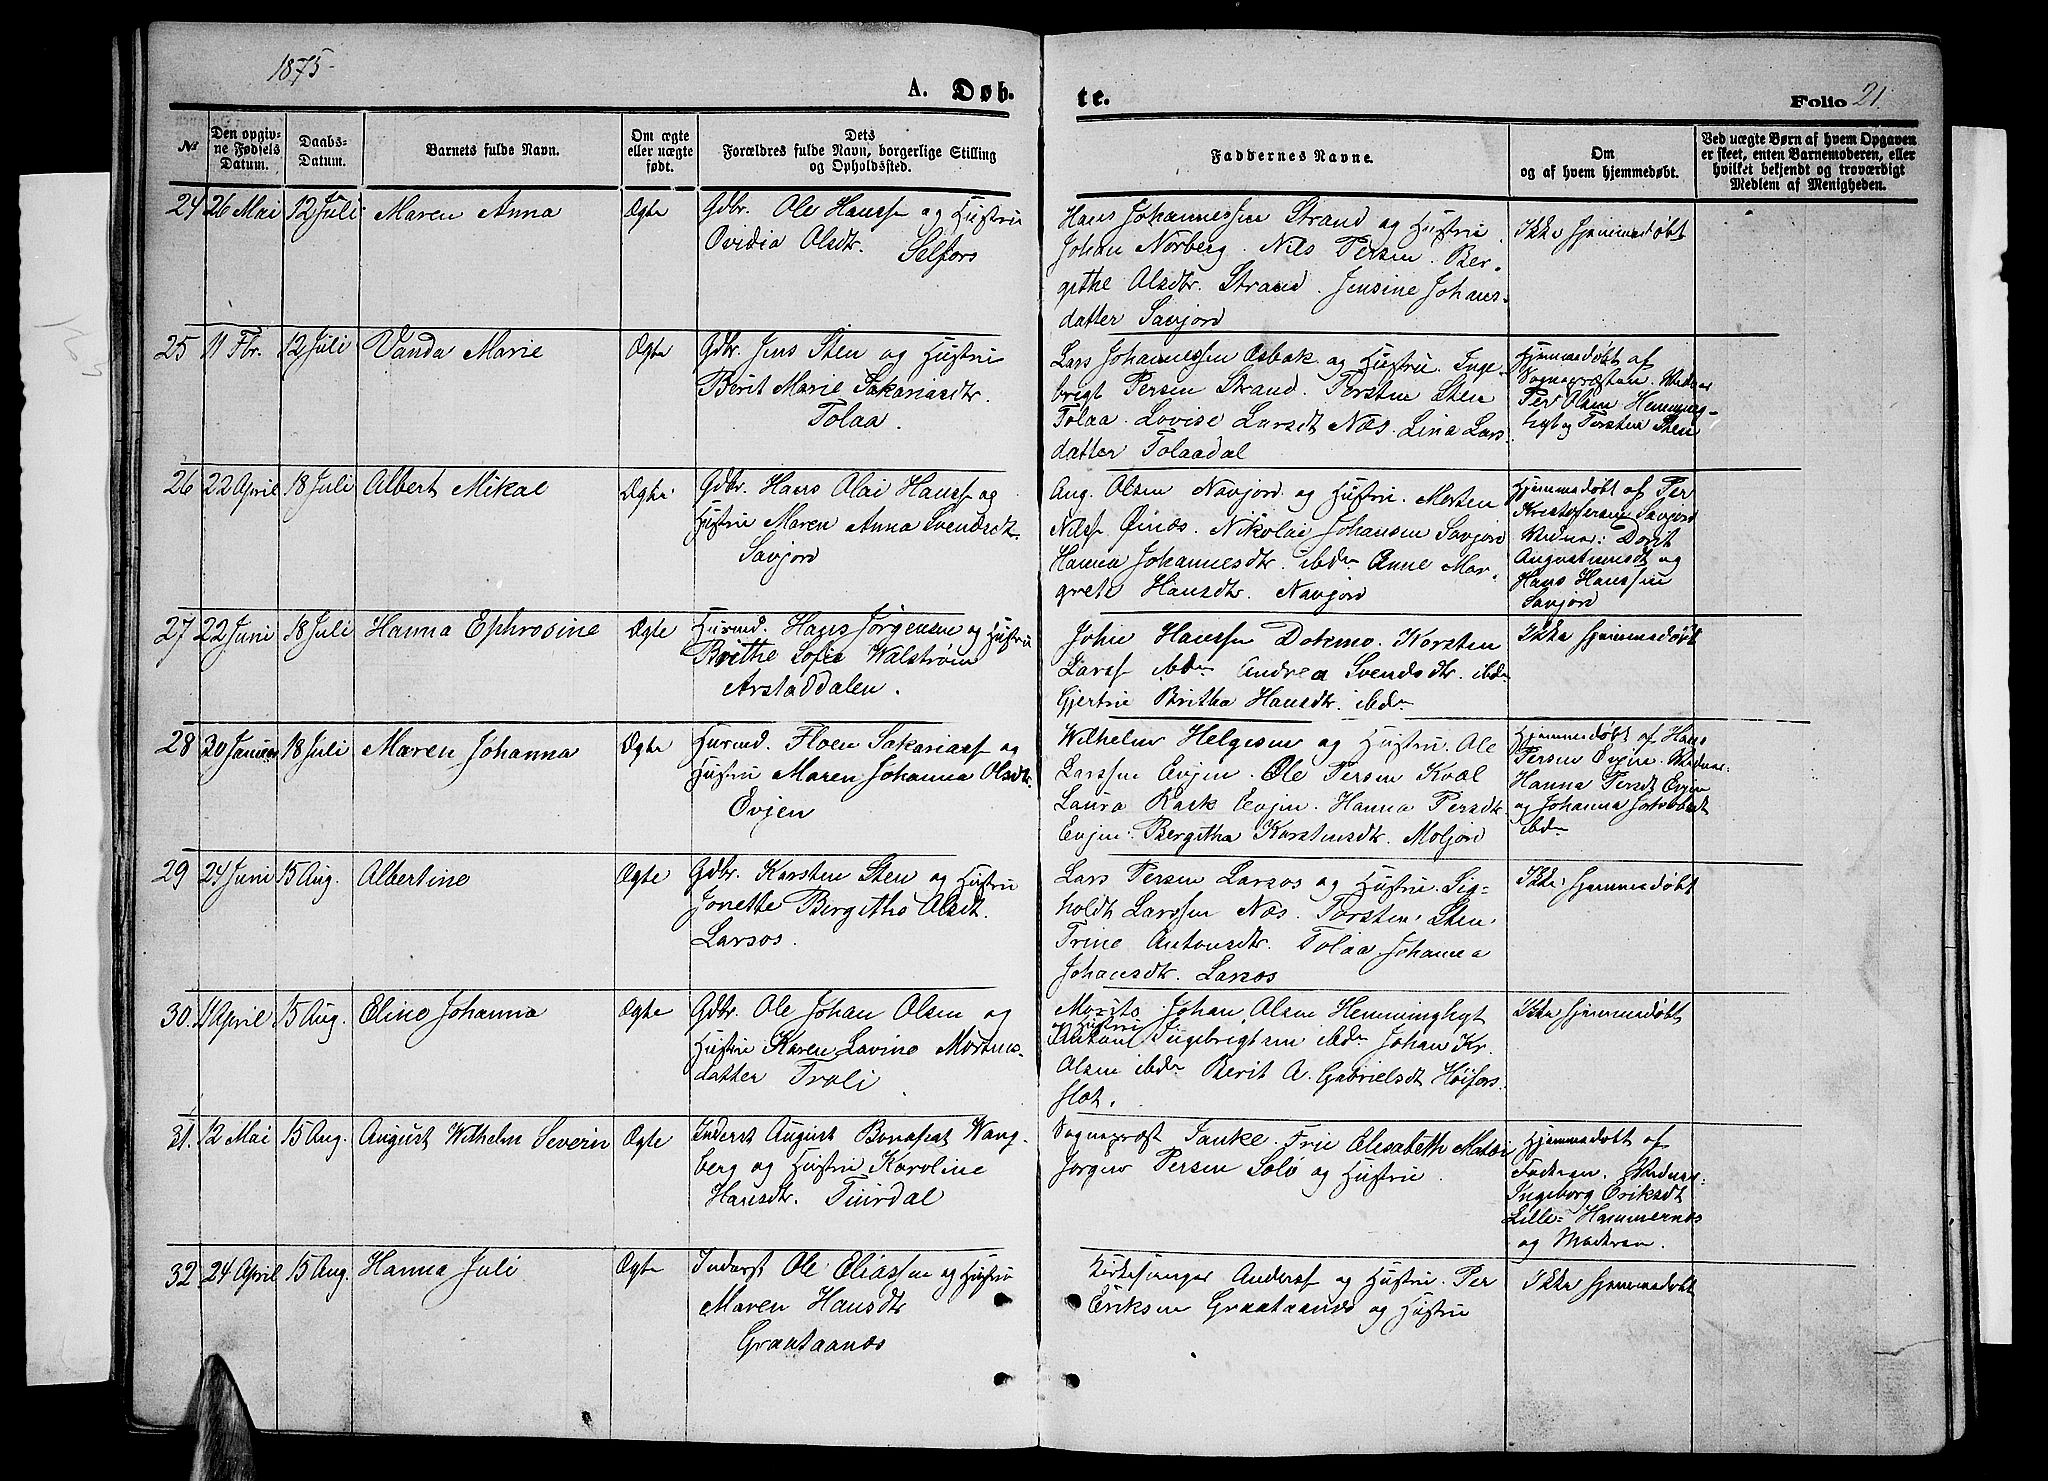 1875
A. Døb.
te.
Folio 21.
No
Den opgivne Fødsels Datum.
Daabs-Datum.
Barnets fulde Navn.
Om ægte eller uægte født.
Dets Forældres fulde Navn, borgerlige Stilling og Opholdssted.
Faddernes Navne.
Om og af hvem hjemmedøbt.
Ved uægte Børn af hvem Opgaven er skeet, enten Barnemoderen, eller hvilket bekjendt og troværdigt Medlem af Menigheden.
24 26 Mai 12 Juli Maren Anna Ægte
Gdbr. Ole Hanss og Hustru
Ovidia Olsdtr.
Selfors
Hans Johannessen Strand og Hustru.
Johan Norberg. Nils Persen. Ber-
githe Olsdtr. Strand. Jensine Johans-
datter Savjord
Ikke hjemmedøbt
25 11 Fbr. 12 Juli Vanda Marie Ægte
Gdbr. Jens Sten og Hustru
Berit Marie Sakariasdtr.
Tolaa.
Lars Johannessen Osbak og Hustru. Inge-
brigt Persen Strand. Torsten Sten
Tolaa. Lovise Larsdt Næs. Lina Lars-
datter Tolaadal
Hjemmedøbt af
Sognepræsten. Vidner
Per Olsen Hemming-
hyt og Torsten Sten
26 22 April 18 Juli Albert Mikal Ægte
Gdbr. Hans Olai Hanss og
Hustru Maren Anna Svendsdt.
Savjord
Aug. Olsen Navjord og Hustru. Morten
Nilss Øinæs. Nikolai Johansen Savjord
Hanna Johannesdtr. ibdm Anne Mar-
grete Hansdtr. Navjord
Hjemmedøbt af Per
Kristofersen Savjord
Vidner: Dorit
Augustinusdt og
Hans Hanssen
Savjord
27 22 Juni 18 Juli Hanna Ephrosine Ægte
Husmd. Hans Jörgensen og Hustru
Brithe Sofie Walström
Arstaddalen.
John Hanssen Dokmo. Karsten
Larss ibdm Andrea Svendsdtr. ibdm
Gjertru Britha Hansdtr. ibdm
Ikke hjemmedøbt
28 30 Januar 18 Juli Maren Johanna Ægte
Husmd. Floen Sakariass og
Hustru Maren Johanna Olsdtr.
Evjen
Wilhelm Helgesen og Hustru. Ole
Larssen Evjen. Ole Persen Kvæl
Laura Rask Evjen. Hanna Persdtr.
Evjen. Bergitha Karstensdtr. Moljord
Hjemmedøbt af Hans
Persen Evjen. Vidner
Hanna Persdt Evjen
og Johanna
ibdm
29 24 Juni 15 Aug. Albertine Ægte
Gdbr. Karsten Sten og Hustru
Jonette Bergitha Olsdt.
Larsos.
Lars Persen Larsos og Hustru. Sig-
holdt Larssen Næs. Torsten Sten
Trine Antonsdtr. Tolaa Johanna
Johansdtr. Larsos
Ikke hjemmedøbt
30. 11 April 15 Aug. Eline Johanna Ægte
Gdbr. Ole Johan Olsen og
Hustru Karen Lavine Mortens-
datter Troli
Morits Johan Olsen Hemminghyt
og Hustru
Anton Ingebrigtsen ibdm Johan Kr.
Olsen ibdm Berit A. Gabrielsdt Høifors
Slot.
Ikke hjemmedøbt
31. 12 Mai 15 Aug. August Wilhelm Severin Ægte
Inderst August Bonafeat Wang-
berg og Hustru Karoline
Hansdtr. Tuurdal
Sognepræst Tanke. Frue Elisabeth
Jørgen Persen Solø og Hustru.
Hjemmedøbt af
Faderen. Vidner
Ingeborg Eriksdt
Lille-Hammernæs
og Moderen.
32 24 April 15 Aug. Hanna Juli Ægte
Inderst Ole Eliassen og Hustru
Maren Hansdtr
Graataanæs
Kirkesanger Anderss og Hustru. Per
Eriksen Graataanæs og Hustru
Ikke hjemmedøbt